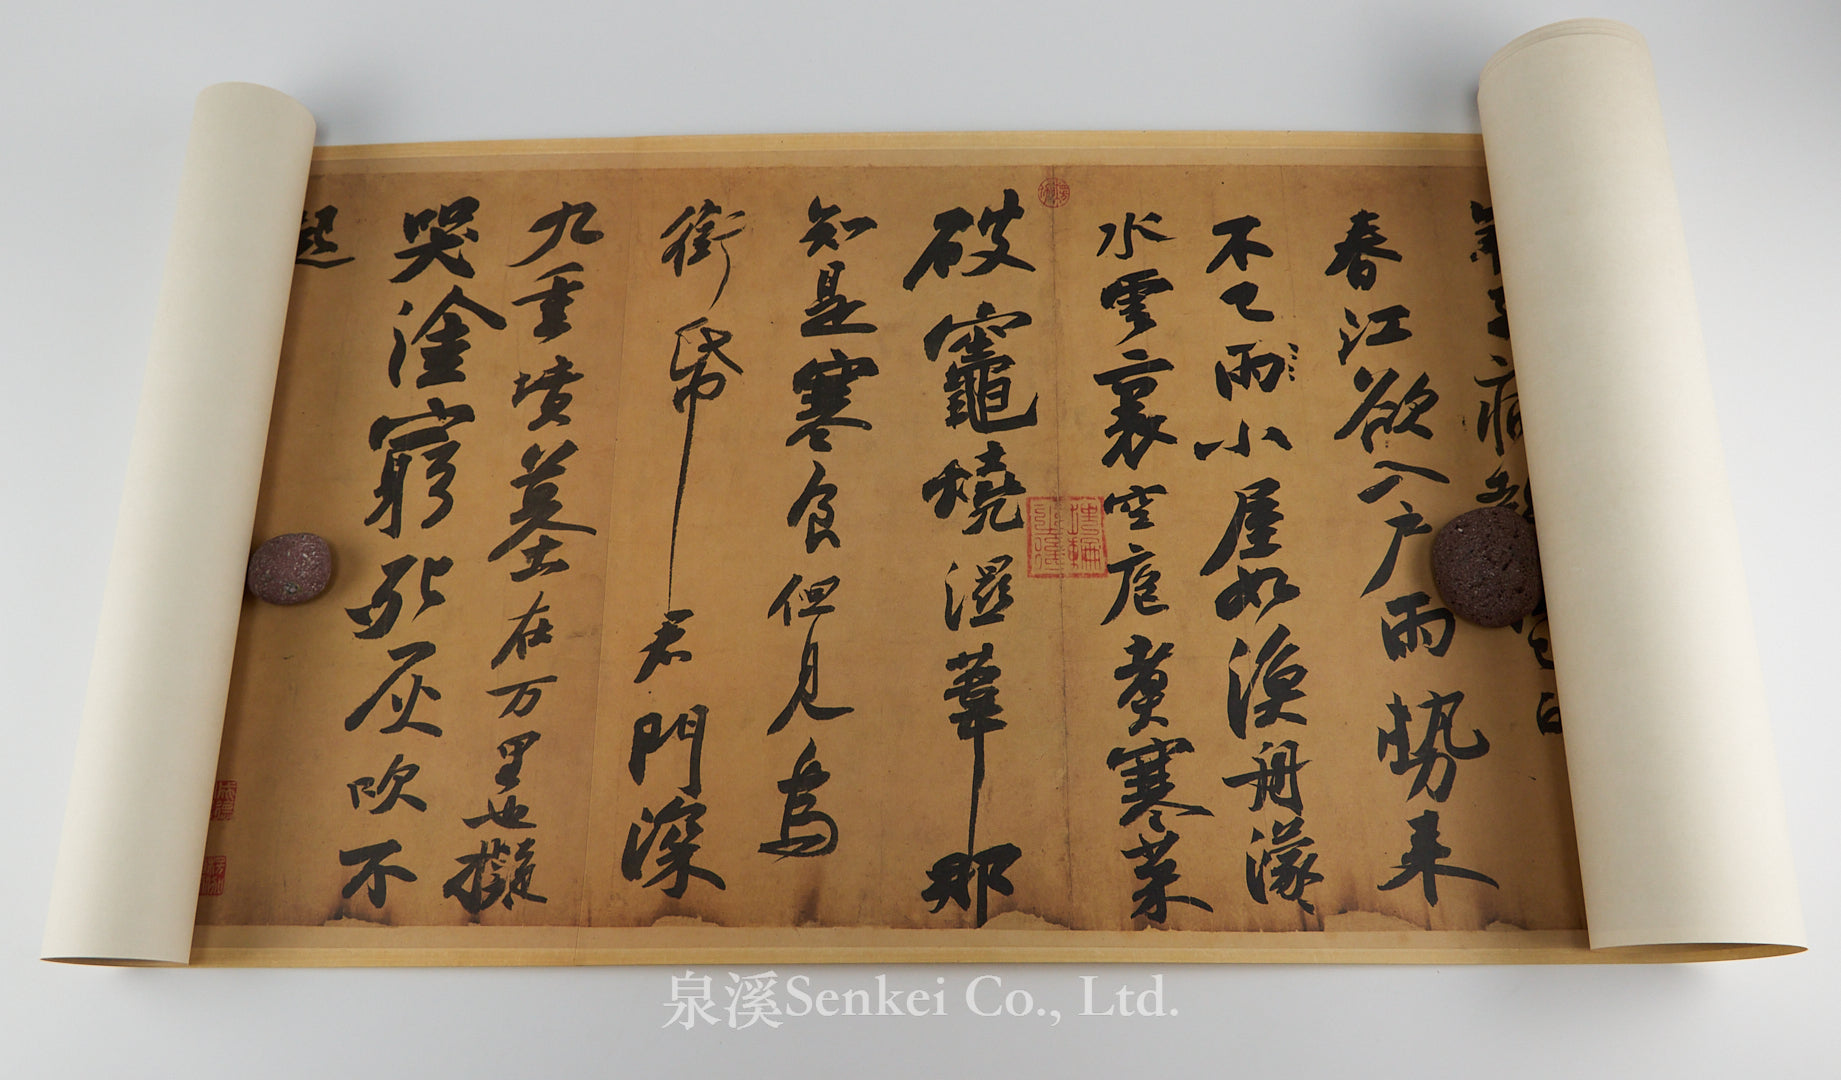 春江欲入户雨勢来
不已雨小屋如漁舟濛
水雲裏空庖煮寒菜
破竈燒濕葦那
知是寒食但見烏
銜帋君門深
九重墳墓在万里也擬
哭塗窮死灰吹不
起
泉溪Senkei Co., Ltd.